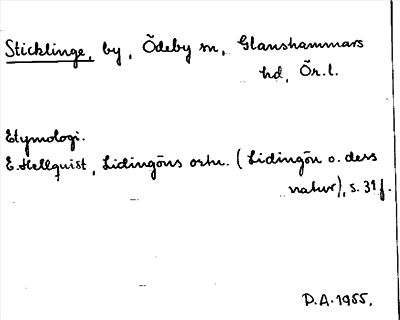 Sticklinge, by, Ödeby sn, Glanshammars
hd, Ör. l.
Etymologi.
E. Hellquist, Lidingöns ortn. (Lidingön o. dess
natur), s. 31 f.
D.A. 1955.